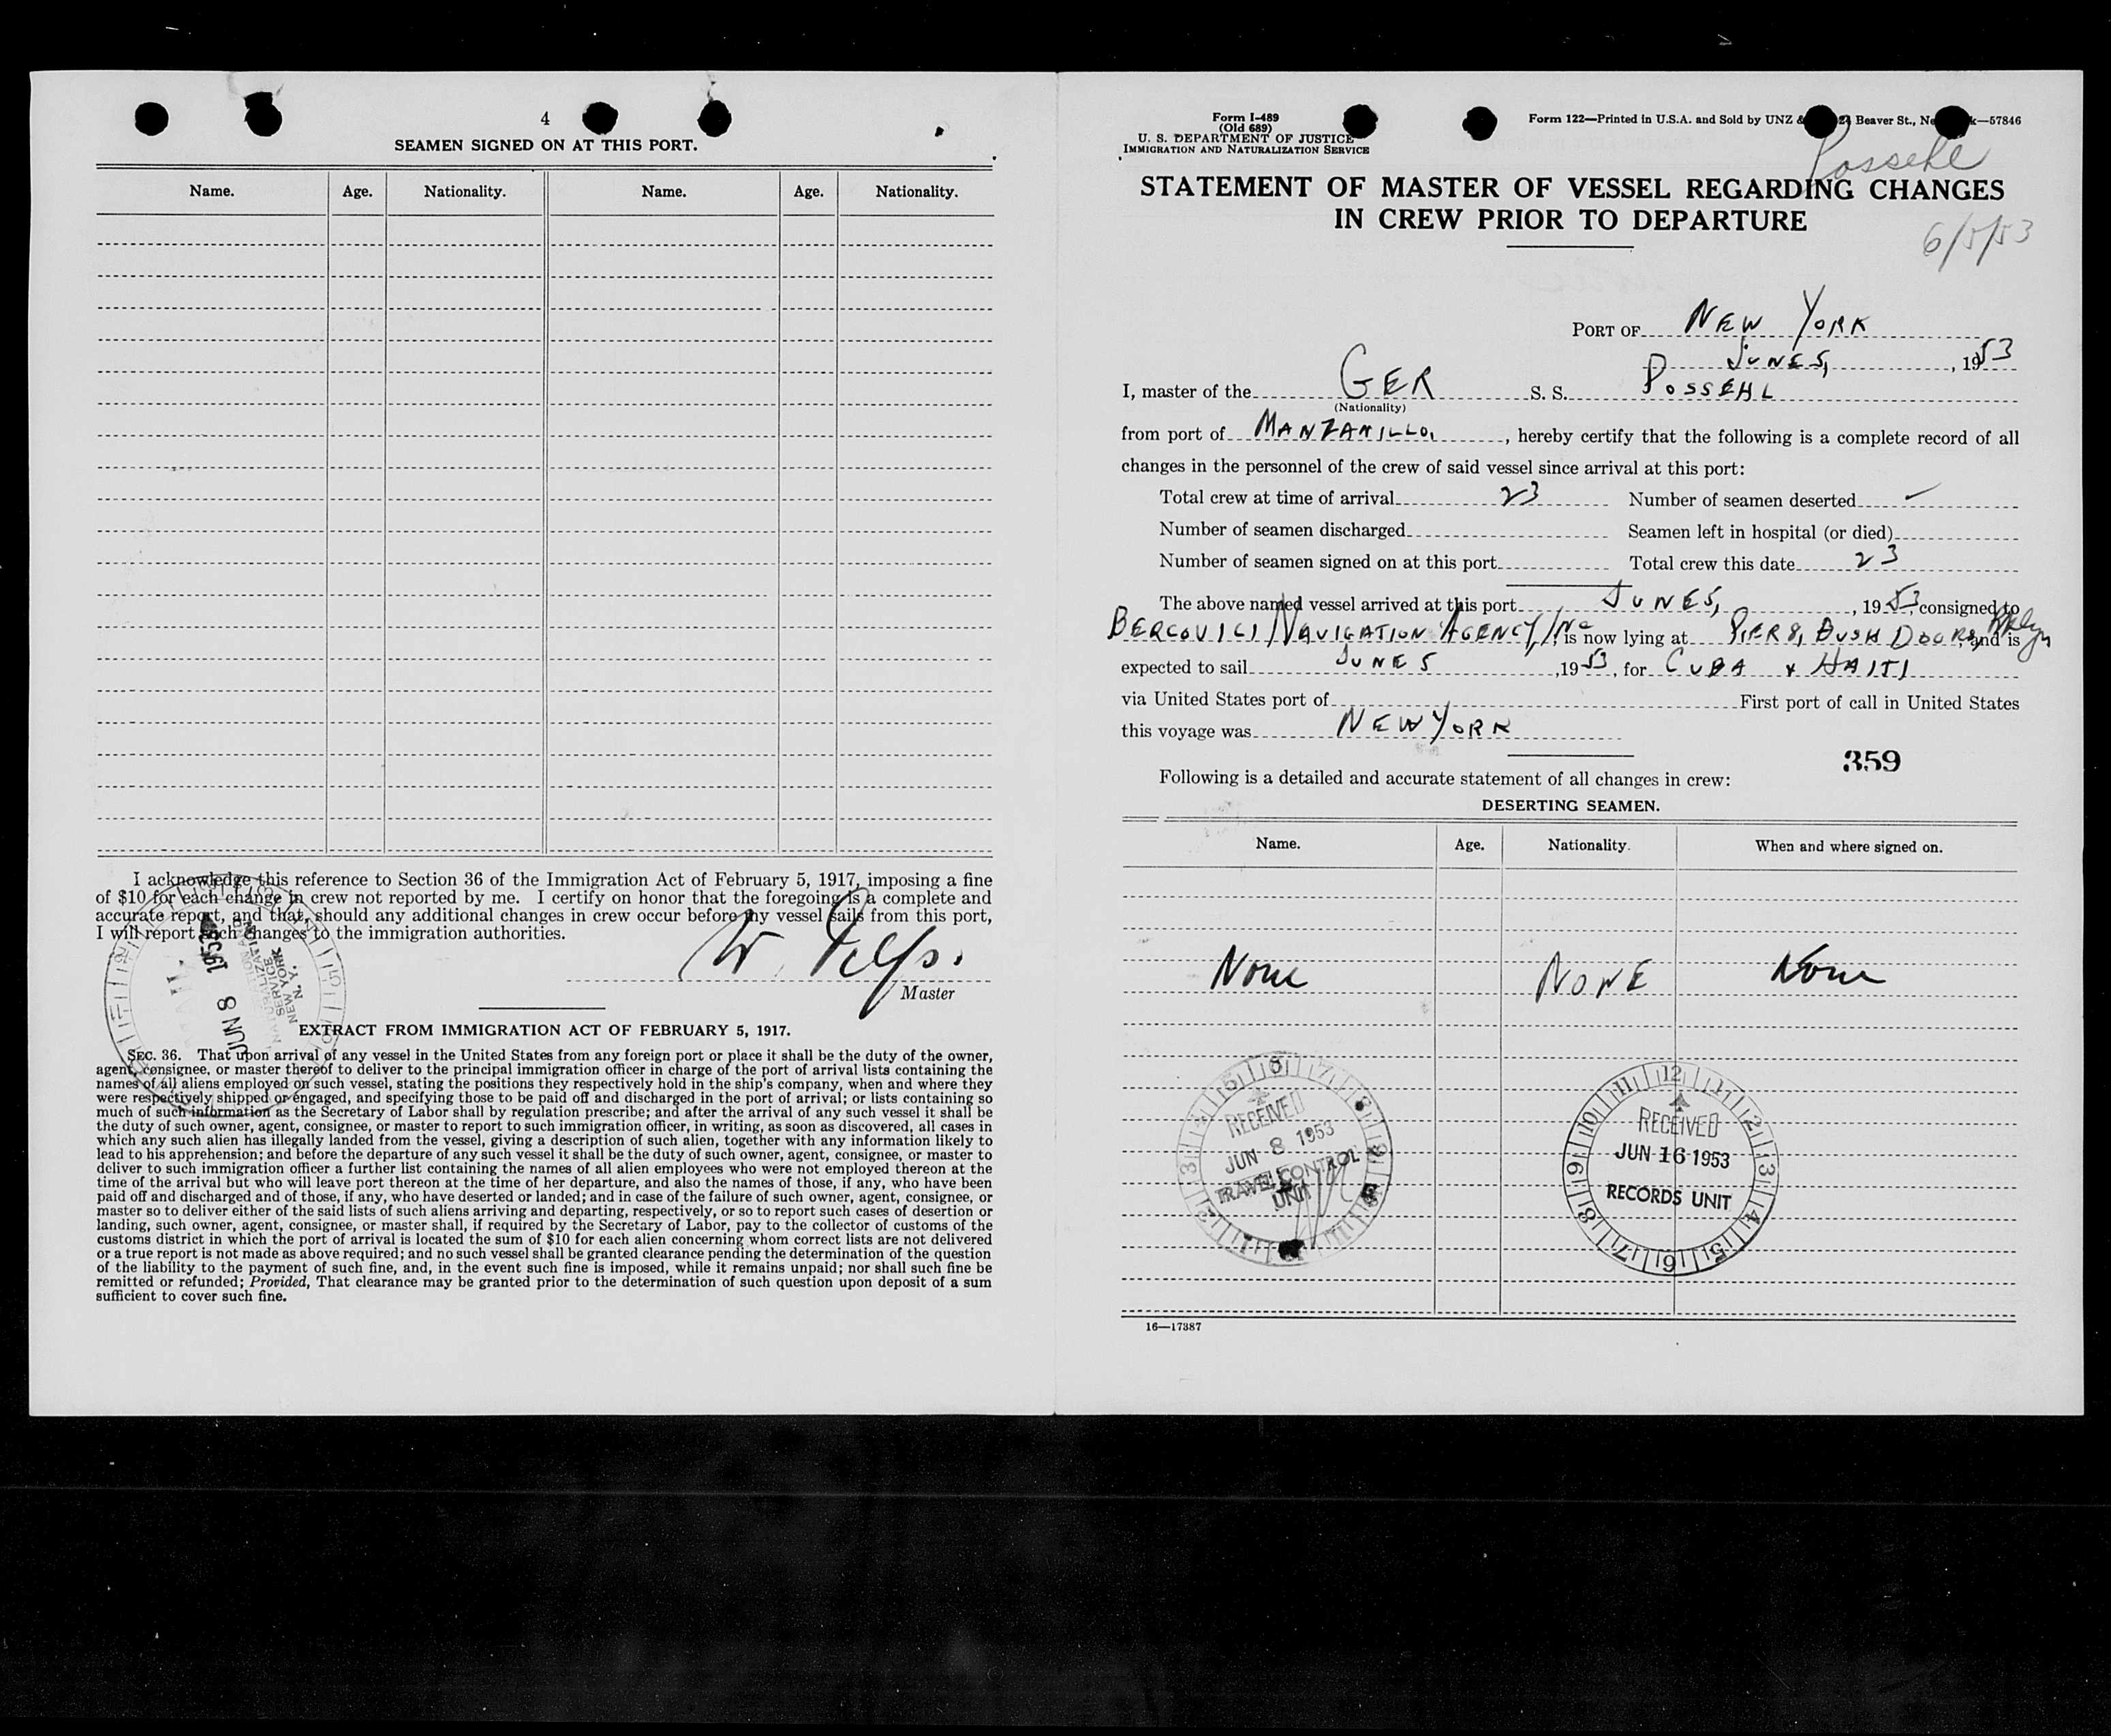 4
SEAMEN SIGNED ON AT THIS PORT.
Name. Age. Nationality. Name. Age. Nationality.
I acknowledge this reference to Section 36 of the Immigration Act of February 5, 1917, imposing a fine
of $10 for each change in crew not reported by me. I certify on honor that the foregoing is a complete and
accurate report, and that, should any additional changes in crew occur before my vessel sails from this port,
I will report such changes to the immigration authorities.
W.
Master
JUN 8 1953
NATURALIZATION
SERVICE
NEW YORK
N. Y.
EXTRACT FROM IMMIGRATION ACT OF FEBRUARY 5, 1917.
SEC. 36. That upon arrival of any vessel in the United States from any foreign port or place it shall be the duty of the owner,
agent, consignee, or master thereof to deliver to the principal immigration officer in charge of the port of arrival lists containing the
names of all aliens employed on such vessel, stating the positions they respectively hold in the ship's company, when and where they
were respectively shipped or engaged, and specifying those to be paid off and discharged in the port of arrival; or lists containing so
much of such information as the Secretary of Labor shall by regulation prescribe; and after the arrival of any such vessel it shall be
the duty of such owner, agent, consignee, or master to report to such immigration officer, in writing, as soon as discovered, all cases in
which any such alien has illegally landed from the vessel, giving a description of such alien, together with any information likely to
lead to his apprehension; and before the departure of any such vessel it shall be the duty of such owner, agent, consignee, or master to
deliver to such immigration officer a further list containing the names of all alien employees who were not employed thereon at the
time of the arrival but who will leave port thereon at the time of her departure, and also the names of those, if any, who have been
paid off and discharged and of those, if any, who have deserted or landed; and in case of the failure of such owner, agent, consignee, or
master so to deliver either of the said lists of such aliens arriving and departing, respectively, or so to report such cases of desertion or
landing, such owner, agent, consignee, or master shall, if required by the Secretary of Labor, pay to the collector of customs of the
customs district in which the port of arrival is located the sum of $10 for each alien concerning whom correct lists are not delivered
or a true report is not made as above required; and no such vessel shall be granted clearance pending the determination of the question
of the liability to the payment of such fine, and, in the event such fine is imposed, while it remains unpaid; nor shall such fine be
remitted or refunded; Provided, That clearance may be granted prior to the determination of such question upon deposit of a sum
sufficient to cover such fine.
Form I-489
(Old 689)
U. S. DEPARTMENT OF JUSTICE
IMMIGRATION AND NATURALIZATION SERVICE
Form 122—Printed in U.S.A. and Sold by UNZ & Beaver St., —57846
Possehl
STATEMENT OF MASTER OF VESSEL REGARDING CHANGES
IN CREW PRIOR TO DEPARTURE
6/5/53
PORT OF NEW YORK
JUNE 5, , 1953
I, master of the GER S. S. POSSEHL
(Nationality)
from port of MANZANILLO, , hereby certify that the following is a complete record of all
changes in the personnel of the crew of said vessel since arrival at this port:
Total crew at time of arrival 23 Number of seamen deserted –
Number of seamen discharged Seamen left in hospital (or died)
Number of seamen signed on at this port Total crew this date 23
The above named vessel arrived at this port JUNE 5, , 1953, consigned to
BERCOVICI NAVIGATION AGENCY INC, is now lying at PIER 8, BUSH DOCKS, Bklyn and is
expected to sail JUNE 5 ,1953, for CUBA & HAITI
via United States port of First port of call in United States
this voyage was NEW YORK
359
Following is a detailed and accurate statement of all changes in crew:
DESERTING SEAMEN.
Name. Age. Nationality. When and where signed on.
None NONE None
RECEIVED
JUN 8 1953
TRAVEL CONTROL
UNIT
RECEIVED
JUN 16 1953
RECORDS UNIT
16—17387